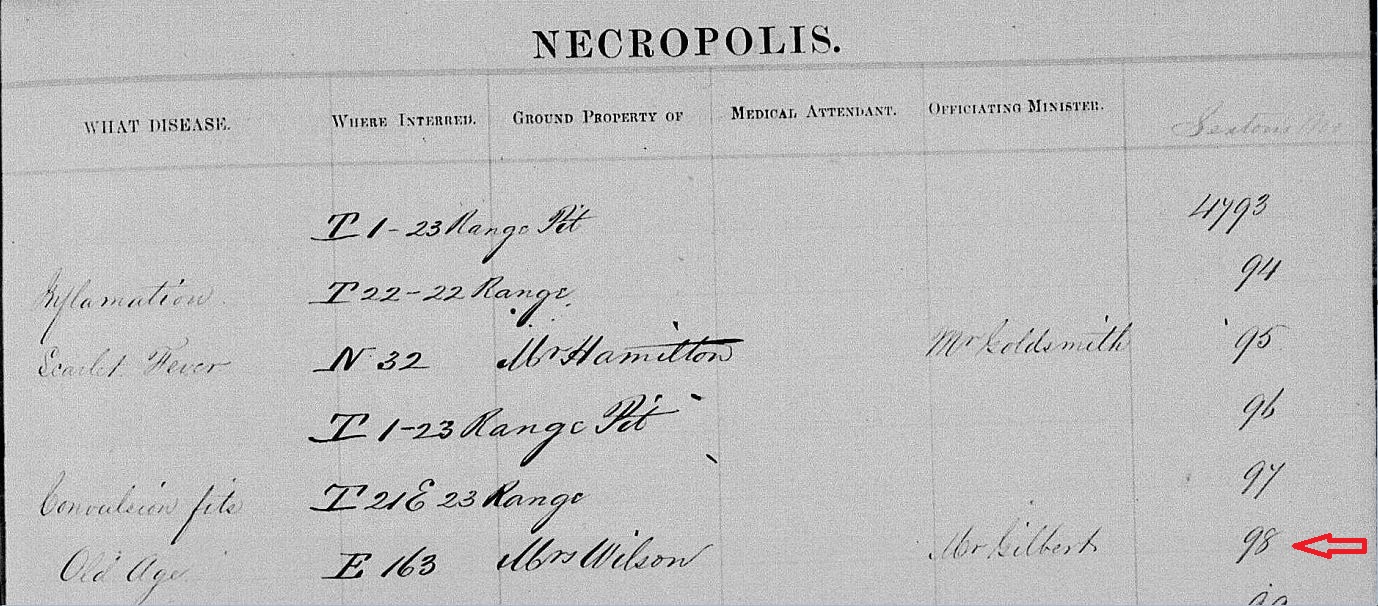 NECROPOLIS.
WHAT DISEASE. WHERE INTERRED. GROUND PROPERTY OF MEDICAL ATTENDANT. OFFICIATING MINISTER. Sextons No
T 1-23 Range Pit 4793
Inflamation T 22-22 Range 94
Scarlet Fever N 32 Mr Hamilton Mr Goldsmith 95
T 1-23 Range Pit 96
Convulsion fits T 21E 23 Range 97
Old Age E 163 Mrs Wilson Mr Gilbert 98